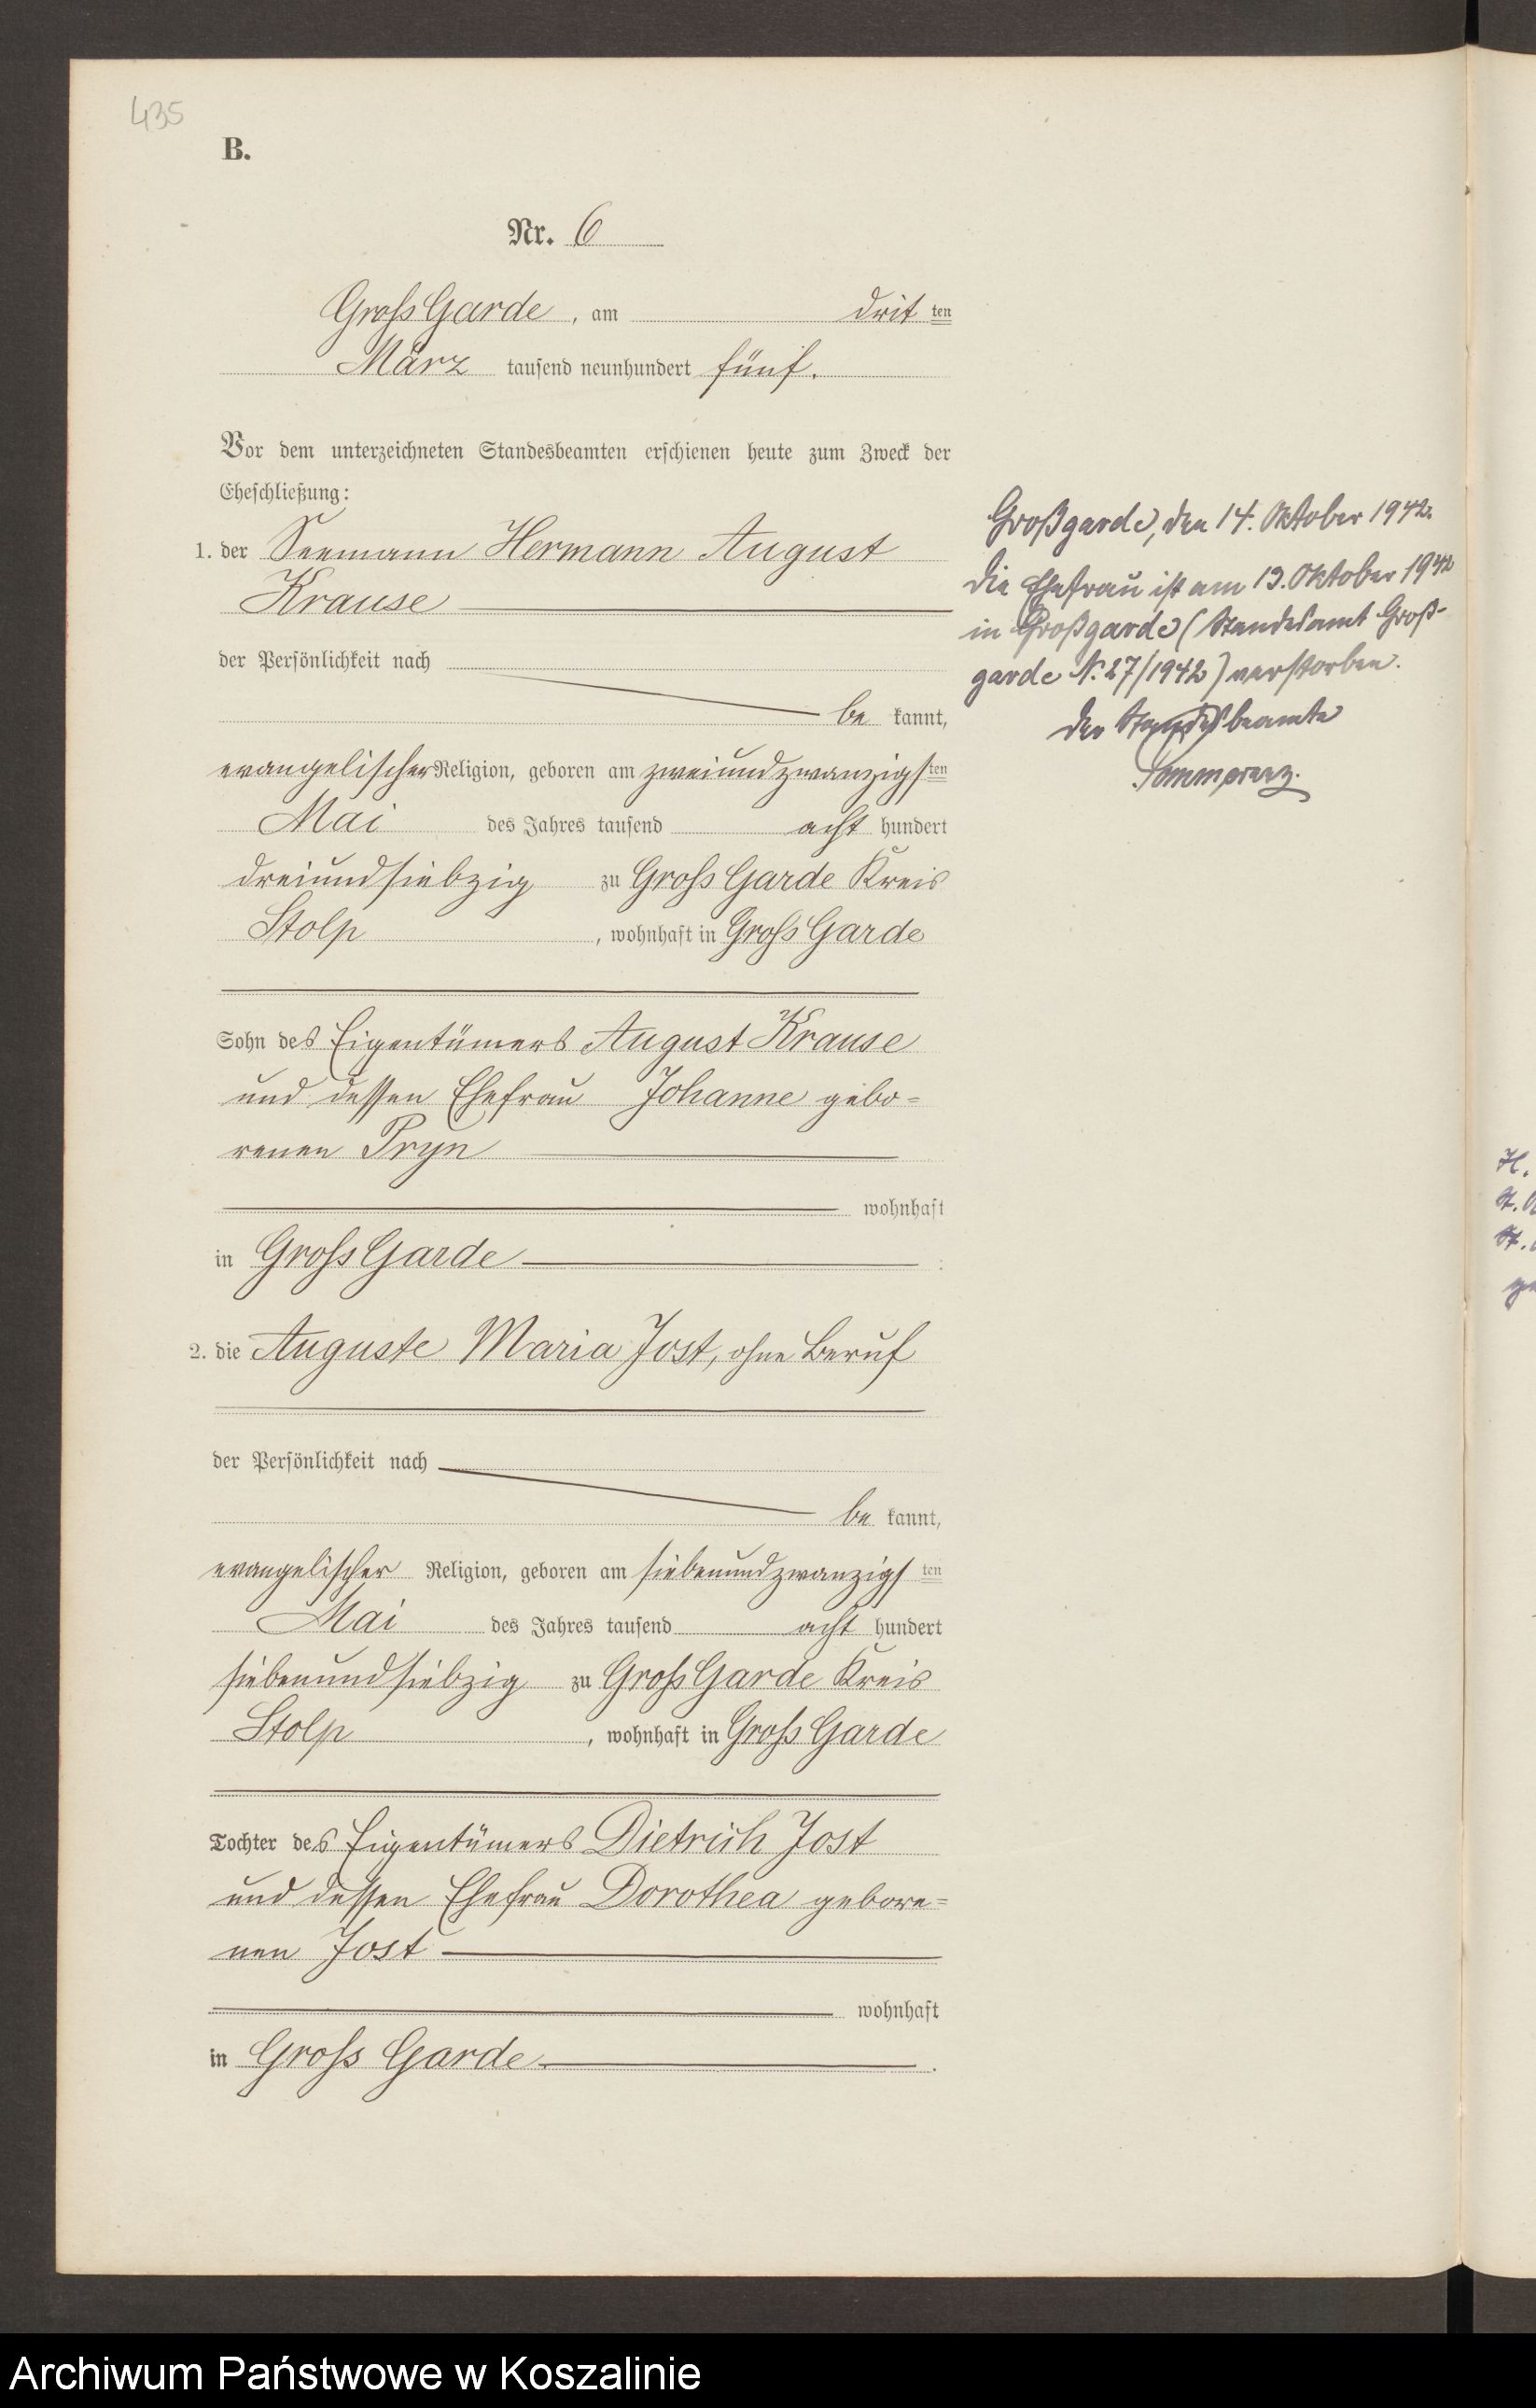 435
B.
Nr. 6
Gross Garde, am dritten
März tausend neunhundert fünf.
Vor dem unterzeichneten Standesbeamten erschienen heute zum Zweck der
Eheschließung:
1. der Seemann Hermann August
Krause
der Persönlichkeit nach
be kannt,
evangelischer Religion, geboren am zweiundzwanzigsten
Mai des Jahres tausend acht hundert
dreiundsiebzig zu Gross Garde Kreis
Stolp, wohnhaft in Gross Garde
Sohn des Eigentümers August Krause
und dessen Ehefrau Johanne gebo=
renen Pryn
wohnhaft
in Gross Garde
2. die Auguste Maria Jost, ohne Beruf
der Persönlichkeit nach
be kannt,
evangelischer Religion, geboren am siebenundzwanzigsten
Mai des Jahres tausend acht hundert
siebenundsiebzig zu Gross Garde Kreis
Stolp, wohnhaft in Gross Garde
Tochter des Eigentümers Dietrich Jost
und dessen Ehefrau Dorothea gebore=
nen Jost
wohnhaft
in Gross Garde.
Großgarde, den 14. Oktober 1942.
Die Ehefrau ist am 13. Oktober 1942
in Großgarde (Standesamt Groß-
garde N. 27/1942) verstorben.
Der Standesbeamte
Archiwum Państwowe w Koszalinie